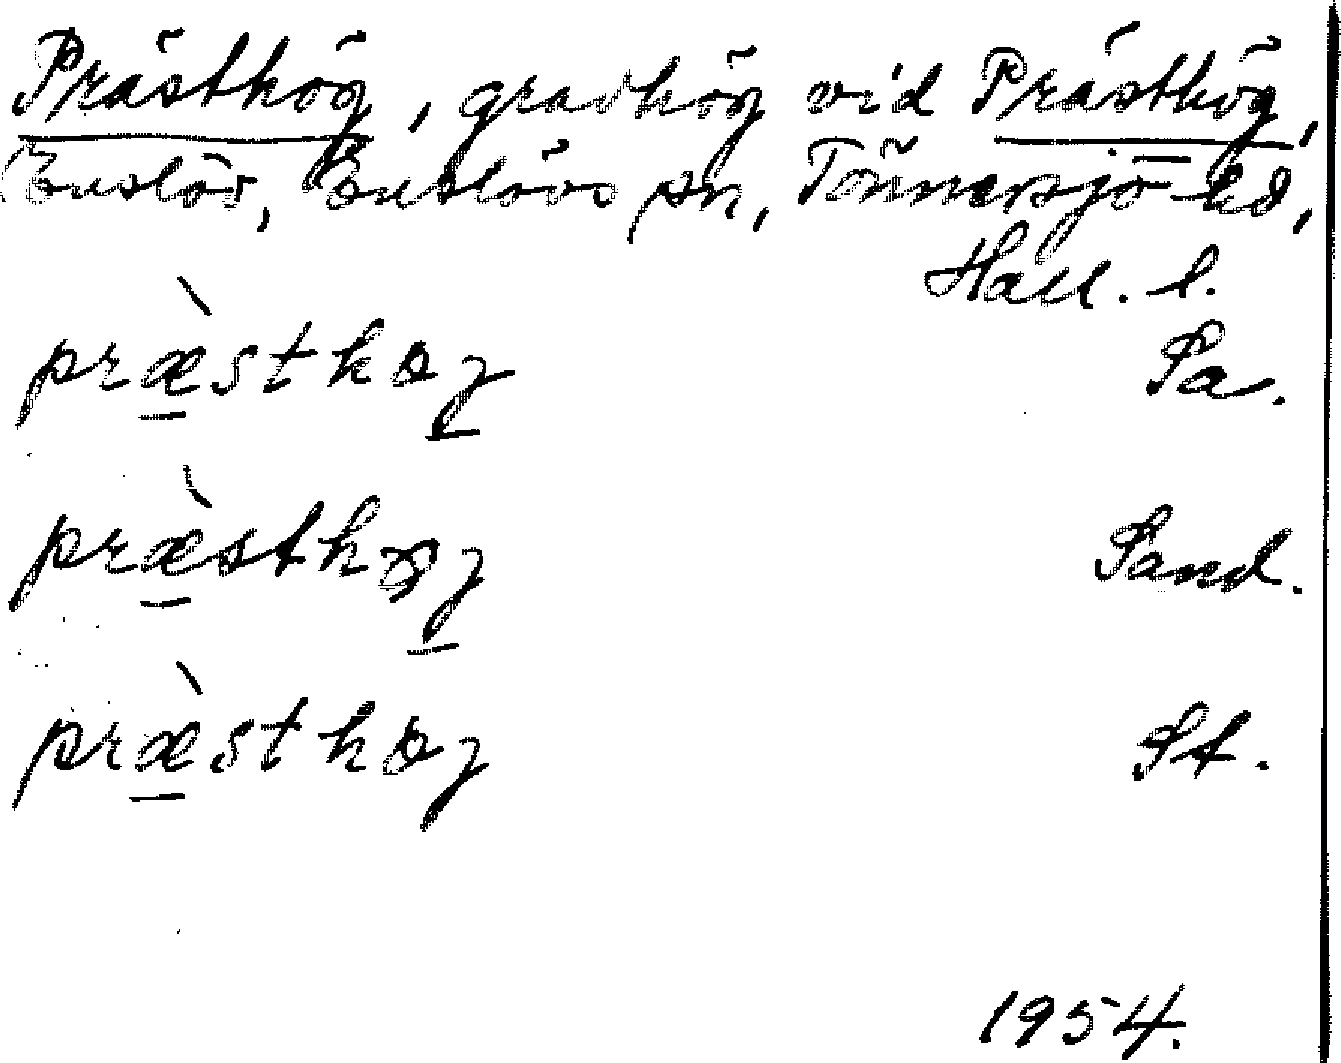 Prästhög, gravhög vid Prästhög,
Enslöv, Enslövs sn, Tönnersjö hd,
Hall. l.
præ̀sthøg Pa.
præ̀sthøg Sand.
præ̀sthøg St.
1954.